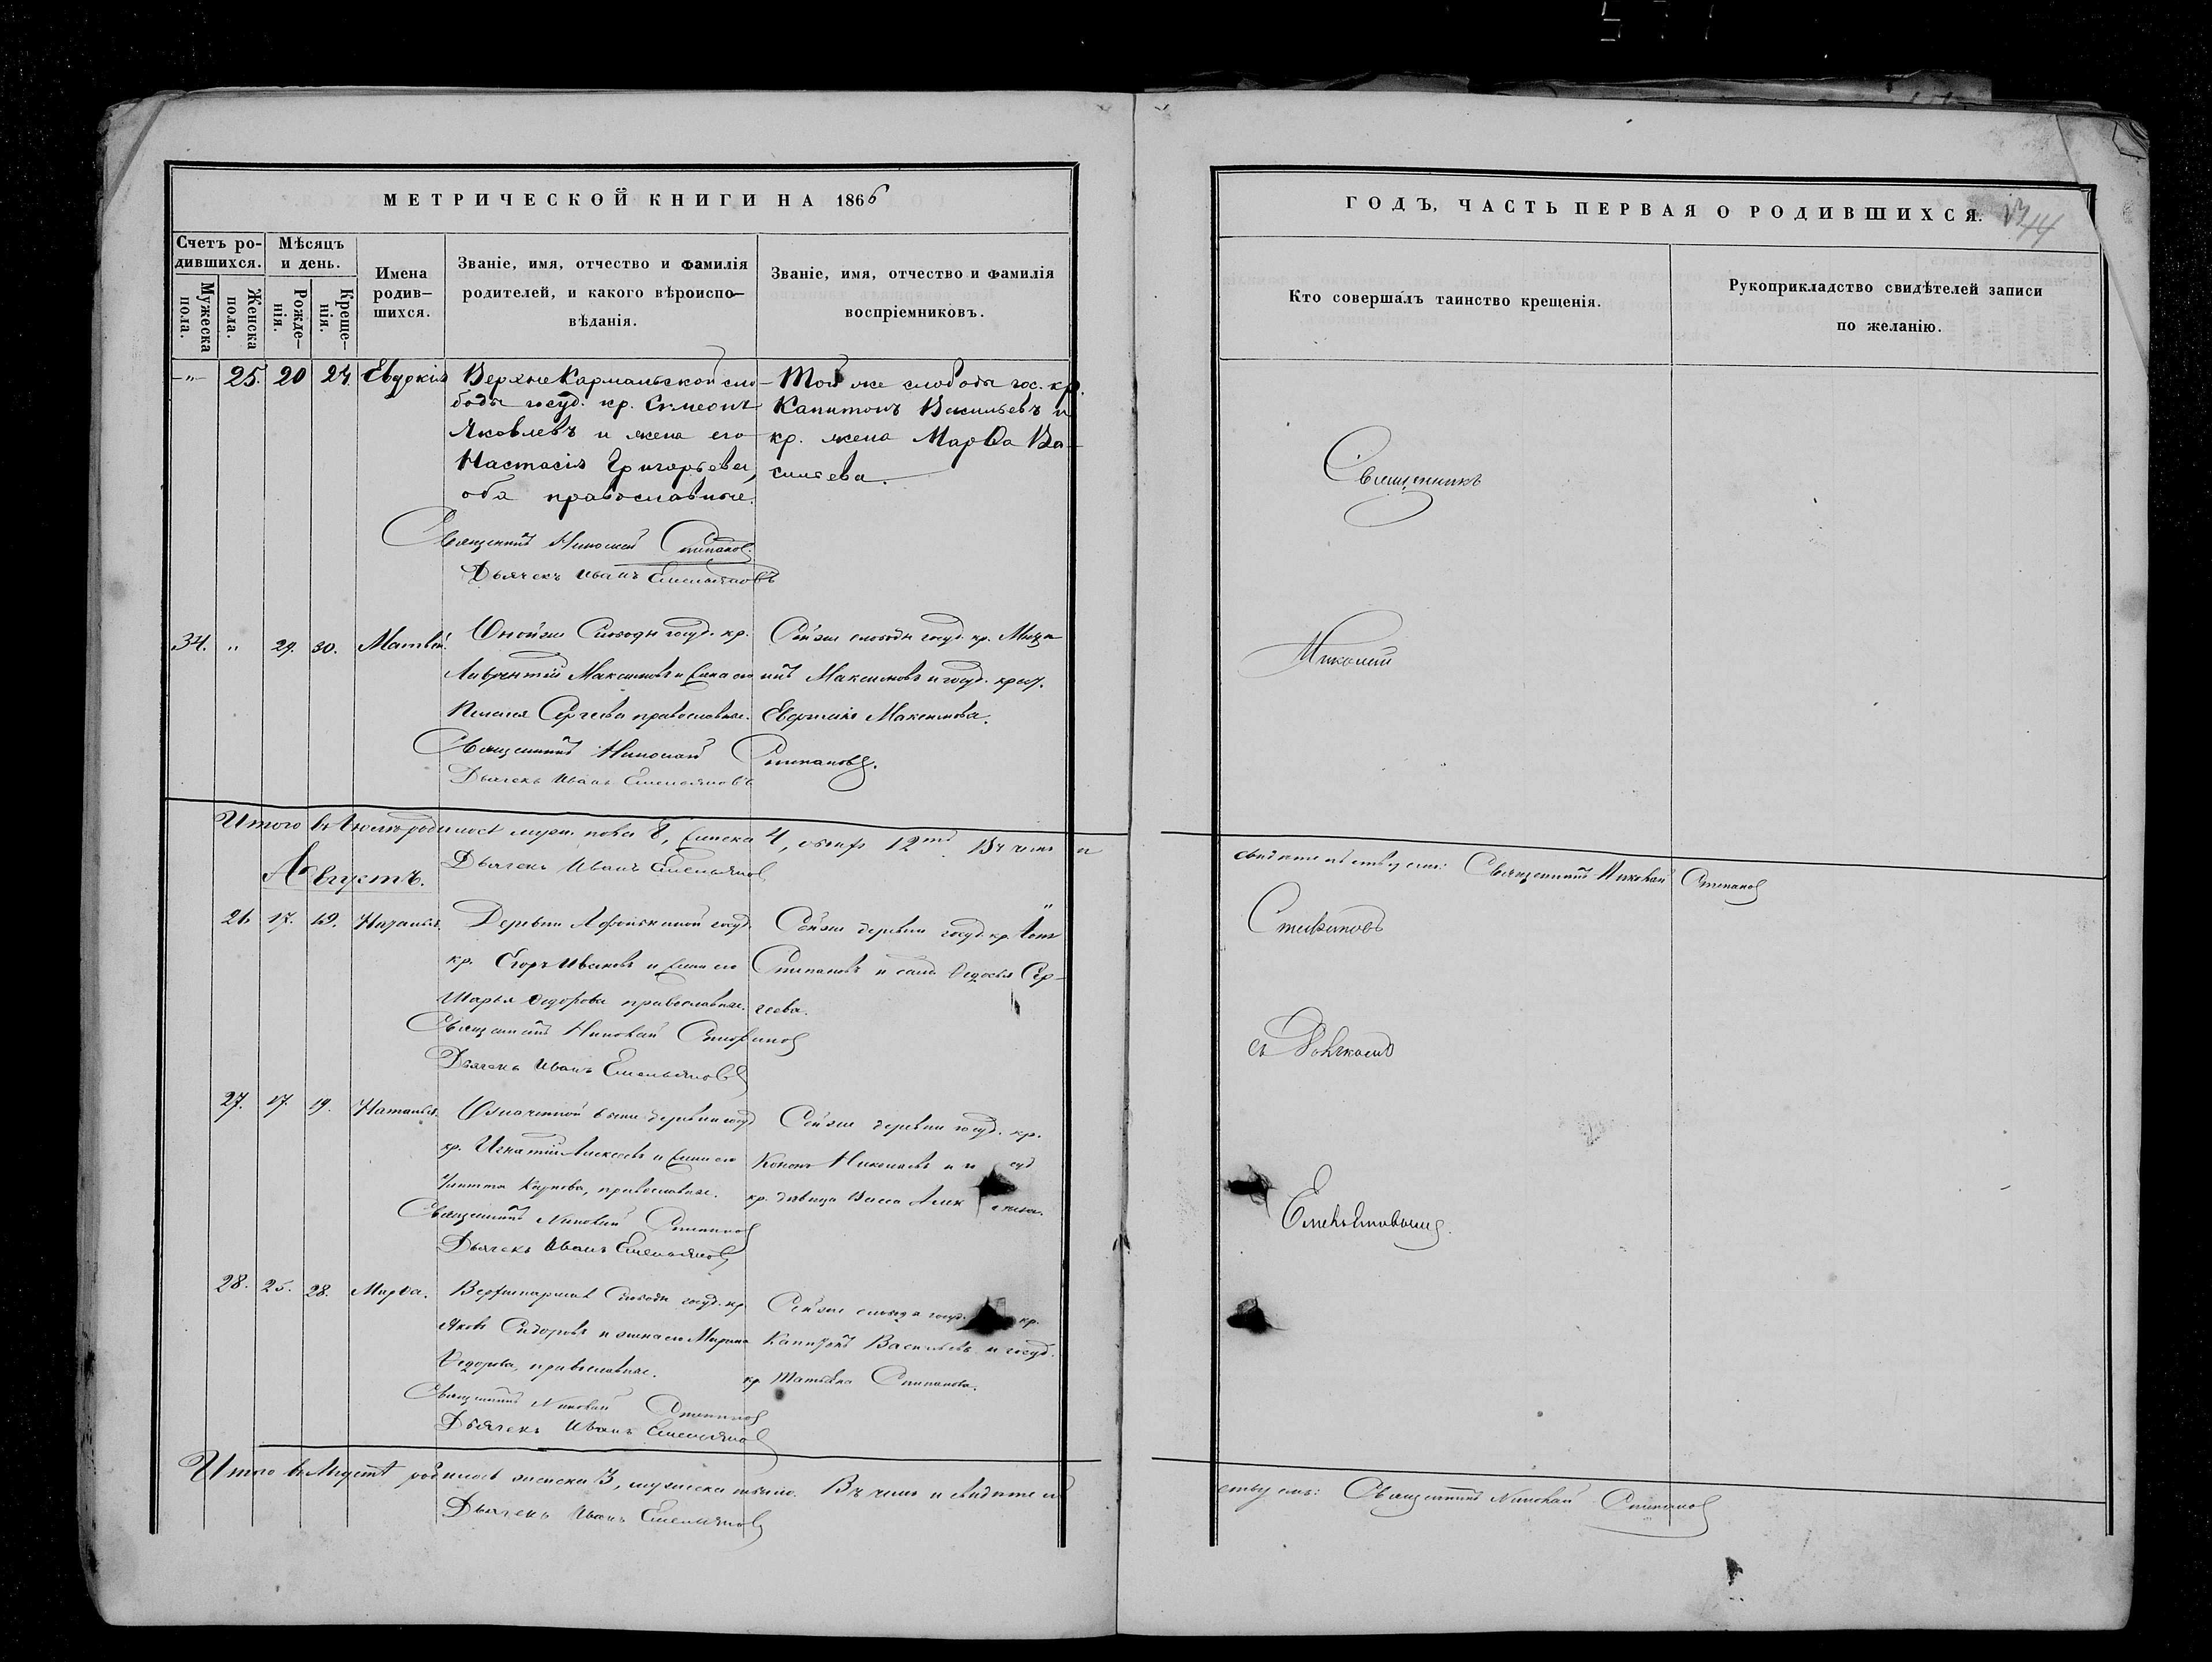 МЕТРИЧЕСКОЙ КНИГИ НА 1866
Счетъ ро-
дившихся.
Мужеска
пола.
Женска
пола.
Мѣсяцъ
и день.
Рожде-
нія.
Креще-
нія.
Имена
родив-
шихся.
Званіе, имя, отчество и фамилія
родителей, и какого вѣроиспо-
вѣданія.
Званіе, имя, отчество и фамилія
воспріемниковъ.
-"- 25. 20 24. Евдокія
Верхне Кармальской сло-
боды госуд. кр. Симеонъ
Яковлевъ и жена его
Настасія Григорьева,
оба православные.
Той же слободы гос. кр.
Капитонъ Васильевъ и
кр. жена Марѳа Ва-
сильева.
Священникъ Николай Степановъ
Дьячекъ Иванъ Емельяновъ
34. " 29. 30. Матвѣй.
Оной же Слободы госуд. кр.
Лаврентій Максимовъ и жена его
Сергеева православные.
Сей же слободы госуд. кр.
Максимовъ и госуд.
Максимова.
Священникъ Николай Степановъ.
Дьячекъ Иванъ Емельяновъ
Итого въ Іюлѣ родилось муж. пола 8, женска 4, обоего 12. Въ чемъ и
Дьячекъ Иванъ Емельяновъ
Августъ.
26 17. 19. Наталья.
Деревни госуд.
кр. Егоръ Ивановъ и жена его
Марья Ѳедорова православные.
Сей же деревни госуд. кр.
Степановъ и Ѳедосья Сер-
геева.
Священникъ Николай Степановъ
Дьячекъ Иванъ Емельяновъ
27. 17. 19. Наталья.
Означенной выше деревни госуд
кр. Игнатій Алексеевъ и жена его
православные.
Сей же деревни госуд. кр.
Кононъ Николаевъ и госуд
кр. девица Васса
Священникъ Николай Степановъ
Дьячекъ Иванъ Емельяновъ
28. 25. 28. Марѳа.
Слободы госуд. кр.
Яковъ Сидоровъ и жена его Марина
Ѳедорова, православные.
Сей же слободы госуд. кр.
Капитонъ Васильевъ и госуд.
кр. Татьяна Степанова.
Священникъ Николай Степановъ
Дьячекъ Иванъ Емельяновъ
Итого въ Августѣ родилось женска 3, мужеска Въ чемъ и свидетель
Дьячекъ Иванъ Емельяновъ
ГОДЪ, ЧАСТЬ ПЕРВАЯ О РОДИВШИХСЯ.
44
Кто совершалъ таинство крещенія.
Рукоприкладство свидѣтелей записи
по желанію.
Священникъ
Николай
свидетельствуемъ: Священникъ Николай Степановъ
Степановъ
съ Дьячкомъ
Емельяновымъ.
ствуемъ: Священникъ Николай Степановъ